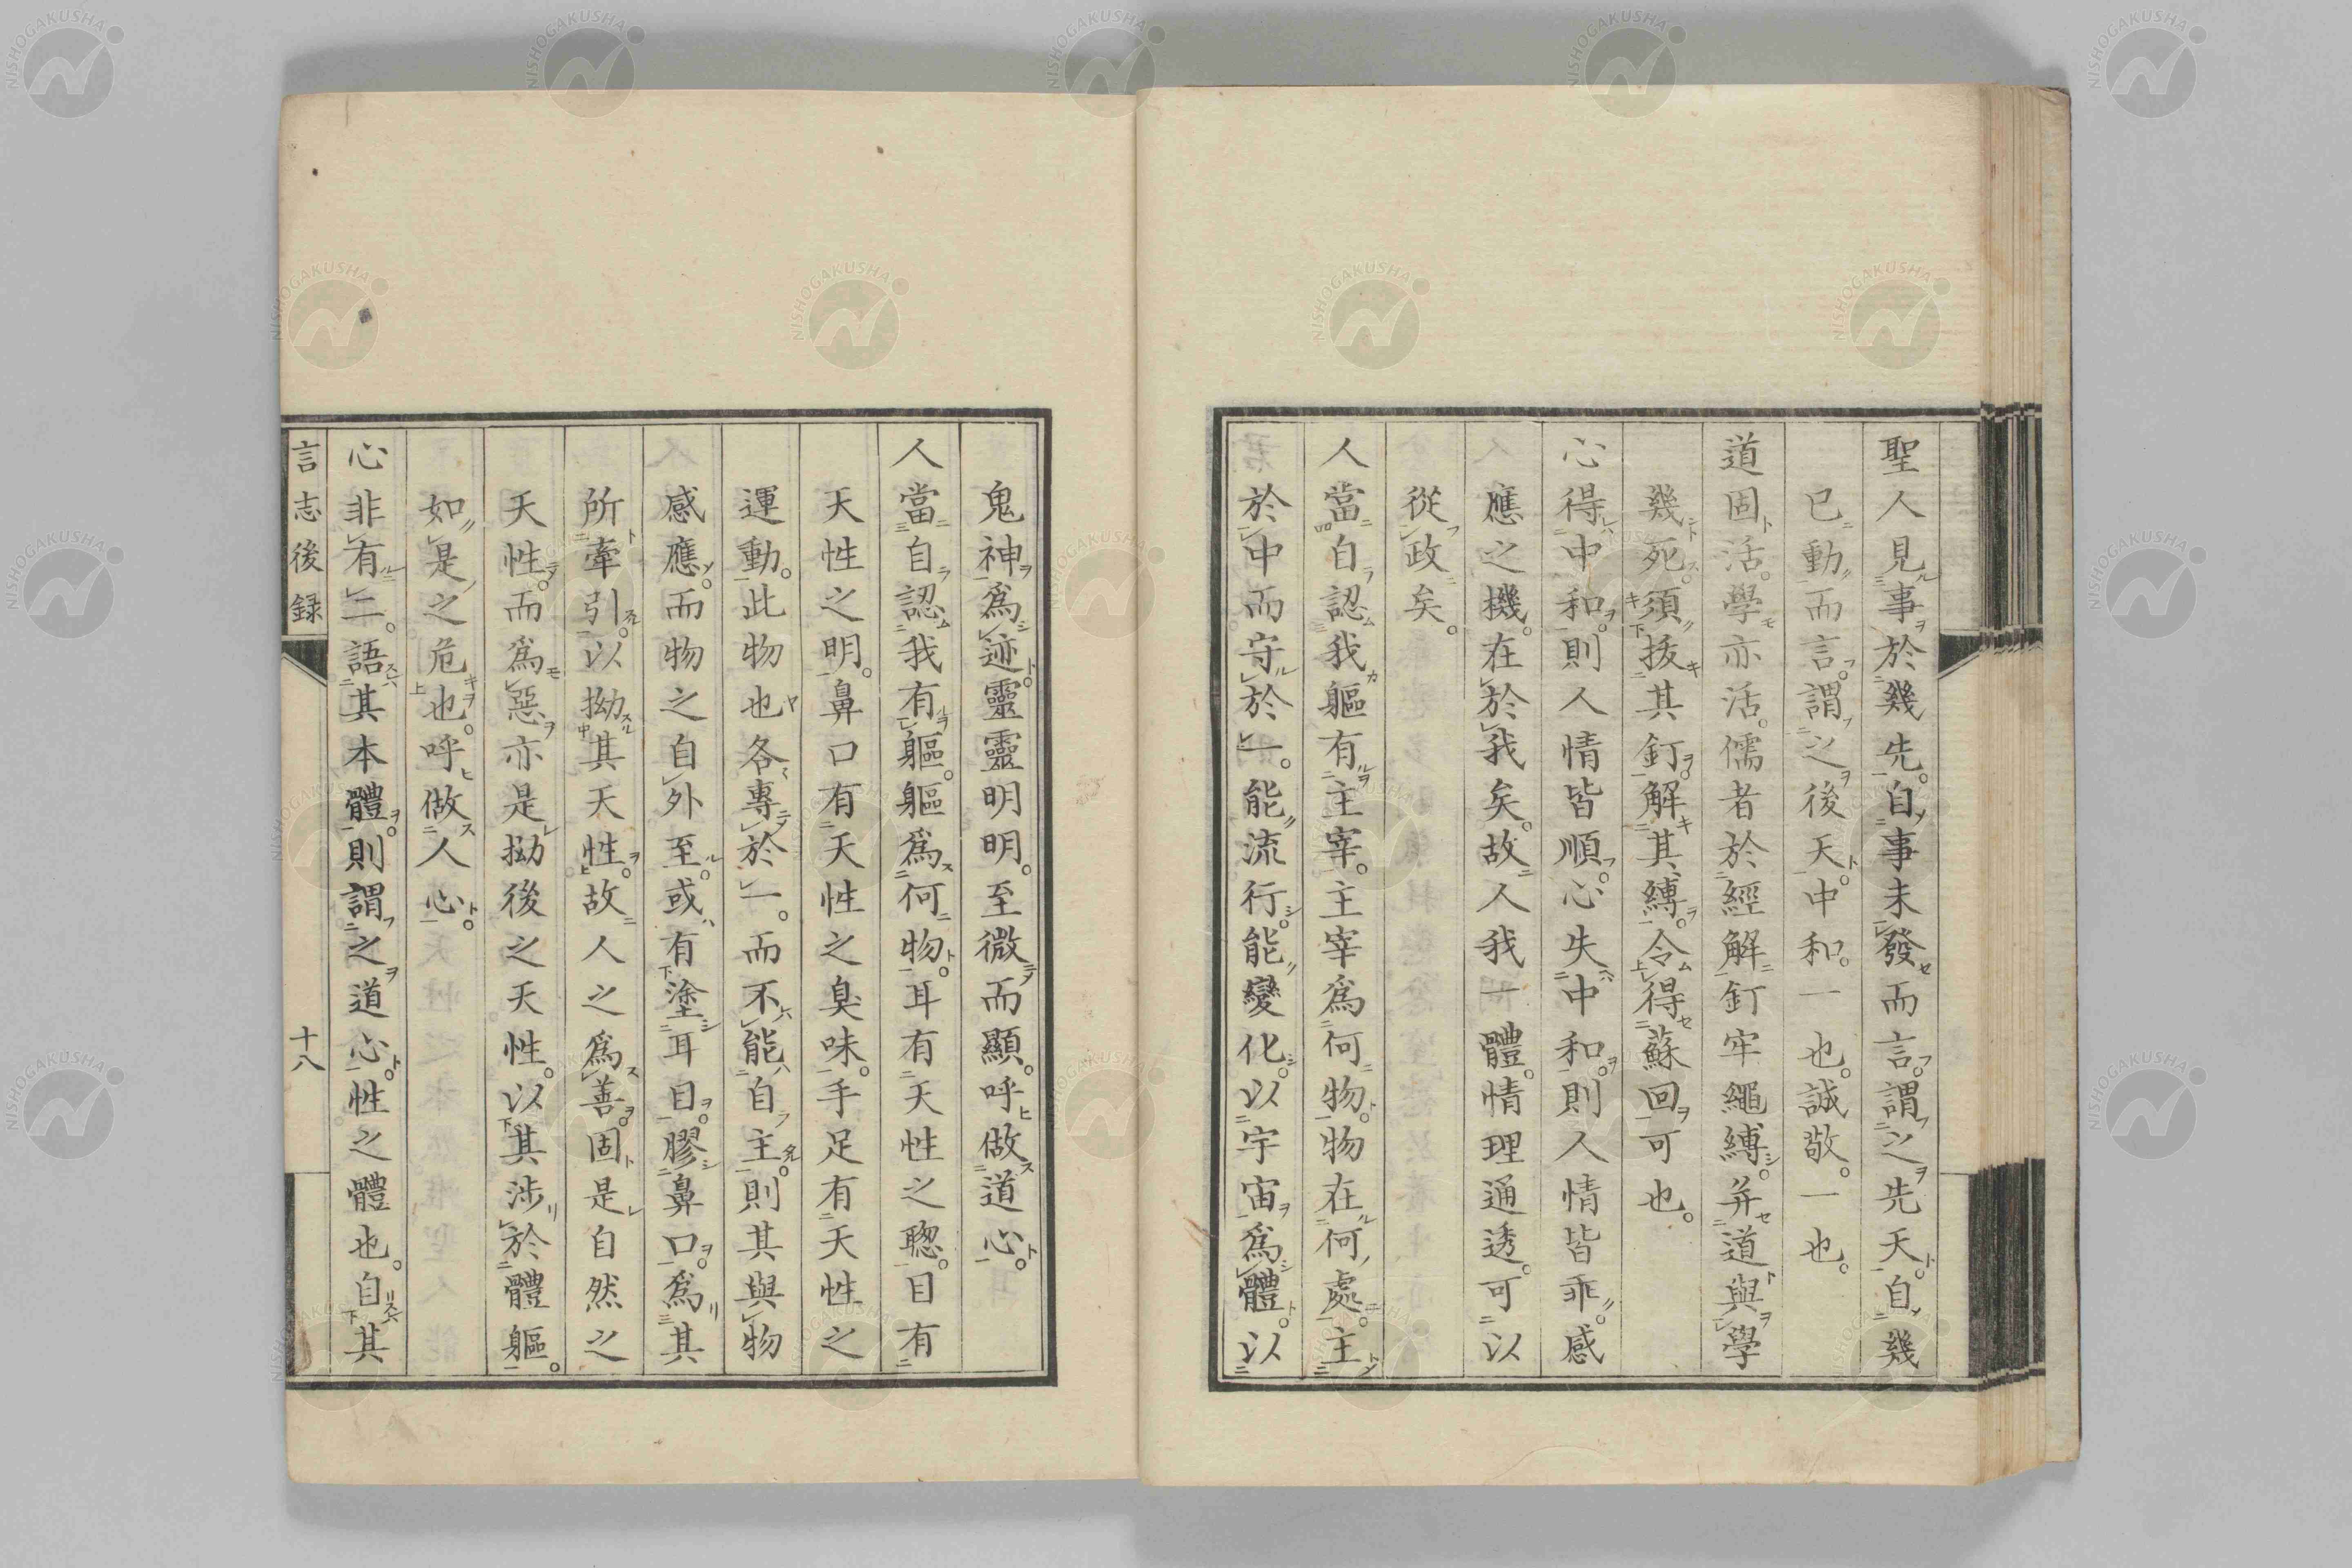 聖人見事於幾先。自事未發而言。謂之先天。自幾
已動而言。謂之後天。中和。一也。誠敬。一也。
道固活。學亦活。儒者於經解釘牢繩縛。并道與學
幾死。須拔其釘。解其縛。令得蘇回可也。
心得中和。則人情皆順。心失中和。則人情皆乖。感
應之機。在於我矣。故人我一體。情理通透。可以
從政矣。
人當自認我軀有主宰。主宰為何物。物在何處。主
於中而守於一。能流行。能變化。以宇宙為體。以
鬼神為迹。靈靈明明。至微而顯。呼做道心。
人當自認我有軀。軀為何物。耳有天性之聰。目有
天性之明。鼻口有天性之臭味。手足有天性之
運動。此物也各專於一。而不能自主。則其與物
感應。而物之自外至。或有塗耳目。膠鼻口。為其
所牽引。以拗其天性。故人之為善。固是自然之
天性。而為惡、亦是拗後之天性。以其涉於體軀。
如是之危也。呼做人心。
心非有二。語其本體。則謂之道心。性之體也。自其
言志後録
十八
NISHOGAKUSHA